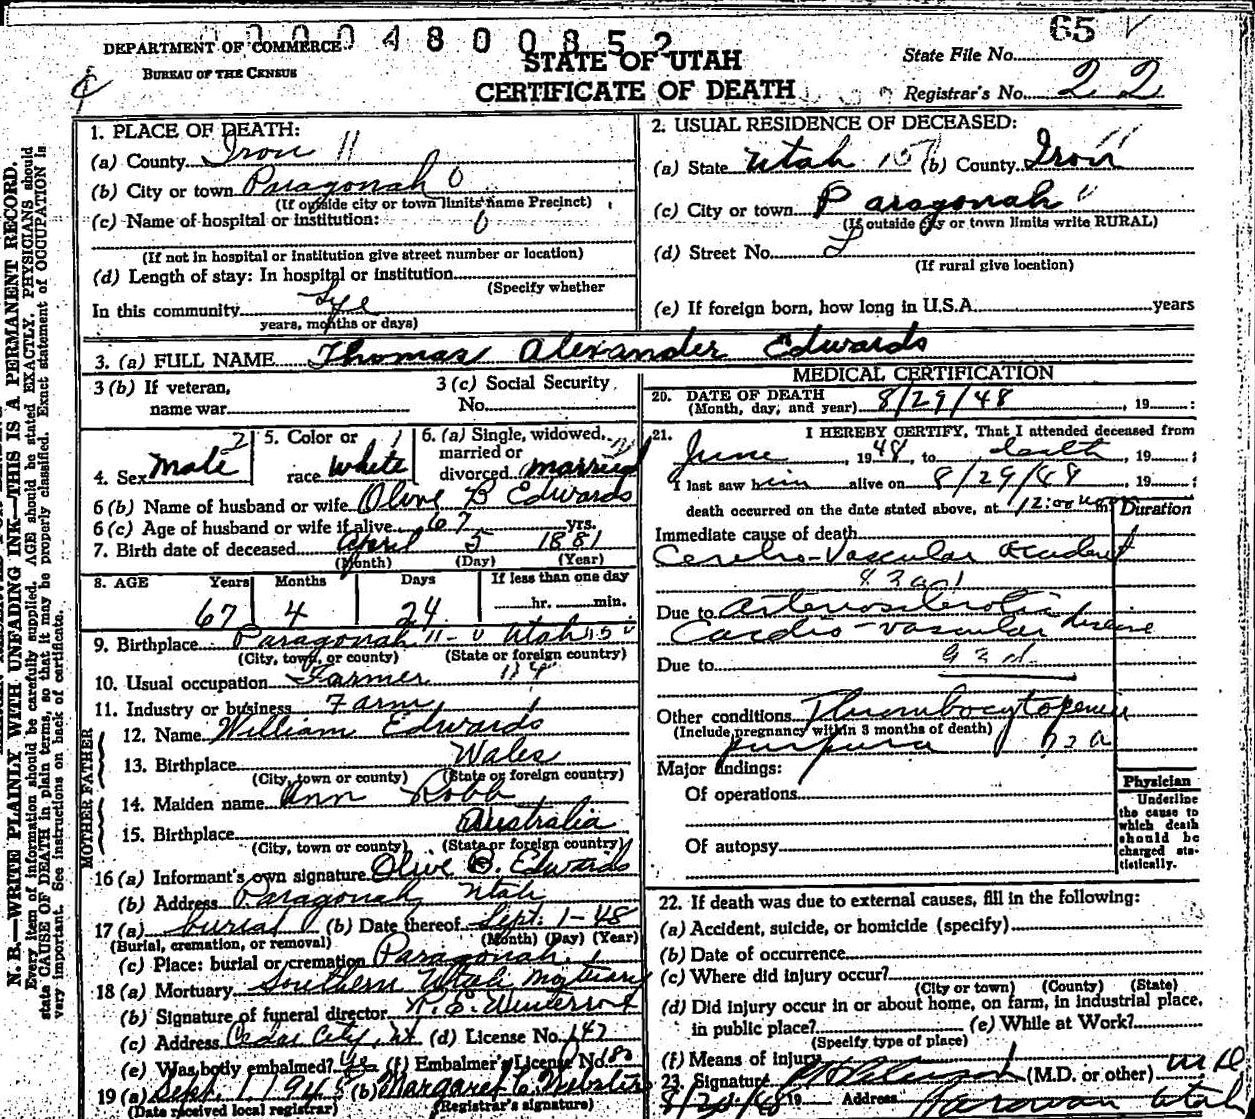 65
0 0 0 4 8 0 0 8 5 2
DEPARTMENT OF COMMERCE
BUREAU OF THE CENSUS
STATE OF UTAH
CERTIFICATE OF DEATH
State File No.
Registrar's No. 22
N. B.—WRITE PLAINLY WITH UNFADING INK—THIS IS A PERMANENT RECORD.
Every item of information should be carefully supplied. AGE should be stated EXACTLY. PHYSICIANS should
state CAUSE OF DEATH in plain terms, so that it may be properly classified. Exact statement of OCCUPATION is
very important. See instructions on back of certificate.
1. PLACE OF DEATH:
(a) County Iron 11
(b) City or town Paragonah 0
(If outside city or town limits name Precinct)
(c) Name of hospital or institution: 0
(If not in hospital or institution give street number or location)
(d) Length of stay: In hospital or institution
(Specify whether
In this community Life
years, months or days)
2. USUAL RESIDENCE OF DECEASED:
(a) State Utah (b) County Iron
(c) City or town Paragonah
(If outside city or town limits write RURAL)
(d) Street No.
(If rural give location)
(e) If foreign born, how long in U.S.A. years
3. (a) FULL NAME Thomas Alexander Edwards
3 (b) If veteran,
name war
3 (c) Social Security
No.
4. Sex Male
5. Color or
race White
6. (a) Single, widowed,
married or
divorced married
6 (b) Name of husband or wife Olive B Edwards
6 (c) Age of husband or wife if alive 67 yrs.
7. Birth date of deceased April 5 1881
(Month) (Day) (Year)
8. AGE Years Months Days If less than one day
67 4 24 hr. min.
9. Birthplace Paragonah 11-0 Utah
(City, town, or county) (State or foreign country)
10. Usual occupation Farmer
11. Industry or business Farm
FATHER
12. Name William Edwards
13. Birthplace Wales
(City, town or county) (State or foreign country)
MOTHER
14. Maiden name Ann Robb
15. Birthplace Australia
(City, town or county) (State or foreign country)
16 (a) Informant's own signature Olive B. Edwards
(b) Address Paragonah, Utah
17 (a) burial (b) Date thereof Sept. 1-48
(Burial, cremation, or removal) (Month) (Day) (Year)
(c) Place: burial or cremation Paragonah
18 (a) Mortuary Southern Utah Mortuary
(b) Signature of funeral director
(c) Address Cedar City, Ut (d) License No. 147
(e) Was body embalmed? Yes (f) Embalmer's License No. 180
19 (a) Sept. 1 1948 (b) Margaret C. Webster
(Date received local registrar) (Registrar's signature)
MEDICAL CERTIFICATION
20. DATE OF DEATH
(Month, day, and year) 8/29/48, 19
21. I HEREBY CERTIFY, That I attended deceased from
June, 1948, to death, 19 ;
I last saw him alive on 8/29/48, 19 ;
death occurred on the date stated above, at 12:00 m
Duration
Immediate cause of death
Cerebro-Vascular accident
Due to Arteriosclerotic
Cardio-vascular disease
Due to
Other conditions Thrombocytopenic
(Include pregnancy within 3 months of death)
purpura
Major findings:
Of operations
Of autopsy
Physician
Underline
the cause to
which death
should be
charged sta-
tistically.
22. If death was due to external causes, fill in the following:
(a) Accident, suicide, or homicide (specify)
(b) Date of occurrence
(c) Where did injury occur?
(City or town) (County) (State)
(d) Did injury occur in or about home, on farm, in industrial place,
in public place? (e) While at Work?
(Specify type of place)
(f) Means of injury
23. Signature (M.D. or other) M.D.
19 Address Parowan Utah